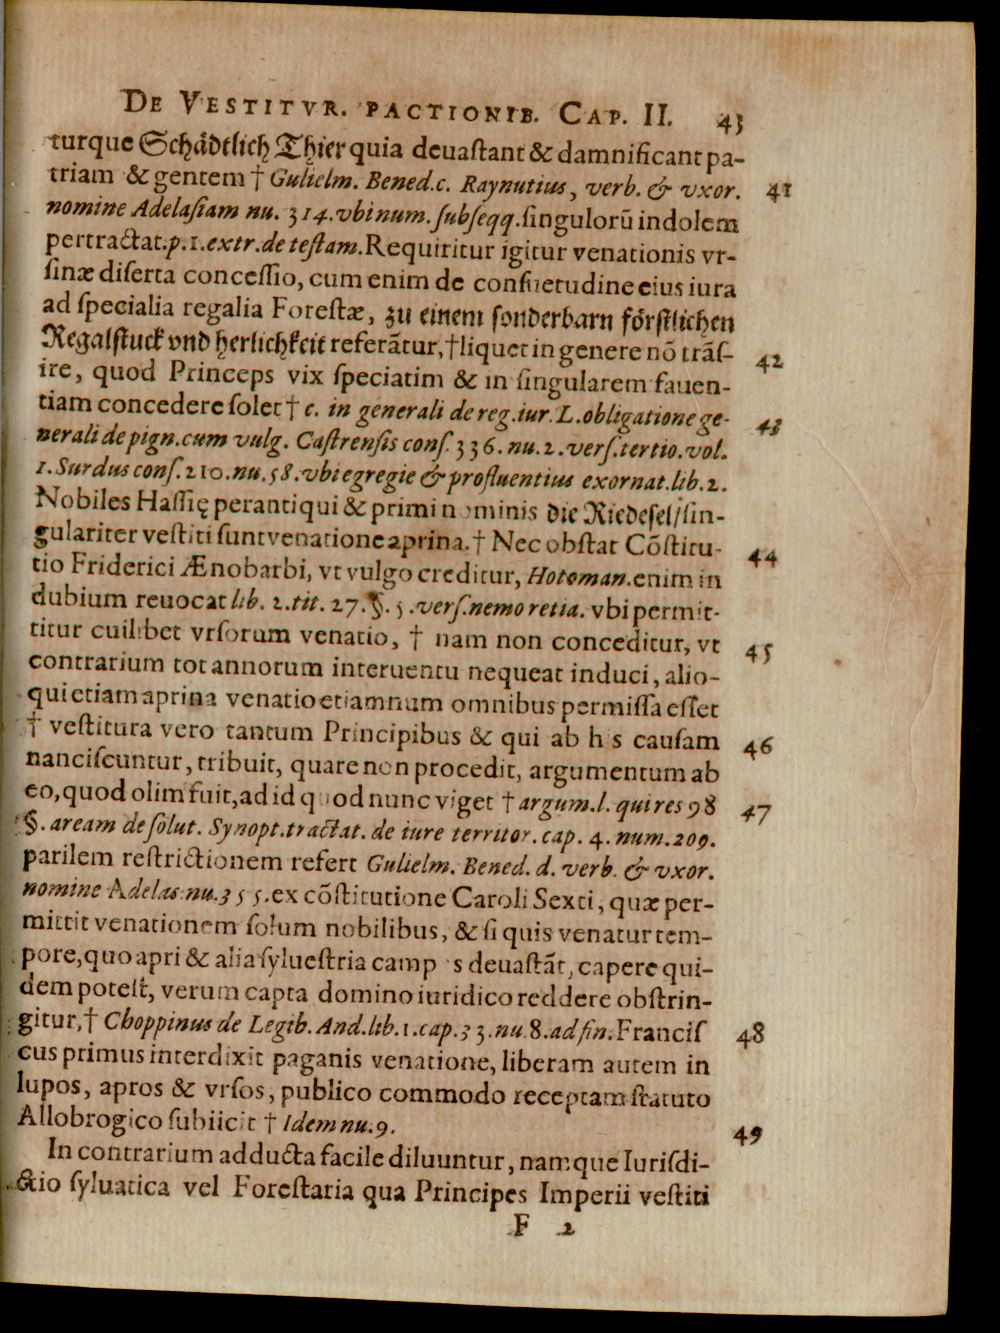 DE VESTITVR. PACTIONIB. CAP. II. 43
turque Schådtlich Thier quia deuaſtant & damnificant pa-
triam & gentem † Gulielm. Bened. c. Raynutius, verb. & vxor. 41
nomine Adelaſiam nu. 314. vbi num. ſubſeqq. ſingulorū indolem
pertractat. p. 1. extr. de teſtam. Requiritur igitur venationis vr-
ſinæ diſerta conceſſio, cum enim de conſuetudine eius iura
ad ſpecialia regalia Foreſtæ, zu einem ſonderbarn förſtlichen
Regalſtuck vnd herlichkeit referātur, † liquet in genere nō trāſ- 42
ire, quod Princeps vix ſpeciatim & in ſingularem fauen-
tiam concedere ſolet † c. in generali de reg. iur. L. obligatione ge- 43
nerali de pign. cum vulg. Caſtrenſis conſ. 336. nu. 2. verſ. tertio. vol.
1. Surdus conſ. 210. nu. 58. vbi egregie & profluentius exornat. lib. 2.
Nobiles Haſſię perantiqui & primi nominis die Riedeſel/ ſin-
gulariter veſtiti ſunt venatione aprina. † Nec obſtat Cōſtitu- 44
tio Friderici Ænobarbi, vt vulgo creditur, Hotoman. enim in
dubium reuocat lib. 2. tit. 27. §. 5. verſ. nemo retia. vbi permit-
titur cuilibet vrſorum venatio, † nam non conceditur, vt 45
contrarium tot annorum interuentu nequeat induci, alio-
qui etiam aprina venatio etiamnum omnibus permiſſa eſſet
† veſtitura vero tantum Principibus & qui ab his cauſam 46
nanciſcuntur, tribuit, quare non procedit, argumentum ab
eo, quod olim fuit, ad id quod nunc viget † argum. l. qui res 98 47
§. aream de ſolut. Synopt. tractat. de iure territor. cap. 4. num. 209.
parilem reſtrictionem refert Gulielm. Bened. d. verb. & vxor.
nomine Adelas. nu. 355. ex cōſtitutione Caroli Sexti, quæ per-
mittit venationem ſolum nobilibus, & ſi quis venatur tem-
pore, quo apri & alia ſylueſtria campos deuaſtāt, capere qui-
dem poteſt, verum capta domino iuridico reddere obſtrin-
gitur, † Choppinus de Legib. And. lib. 1. cap. 33. nu. 8. ad fin. Franciſ 48
cus primus interdixit paganis venatione, liberam autem in
lupos, apros & vrſos, publico commodo receptam ſtatuto
Allobrogico ſubiicit † Idem nu. 9. 49
In contrarium adducta facile diluuntur, namque Iuriſdi-
ctio ſyluatica vel Foreſtaria qua Principes Imperii veſtiti
F 2